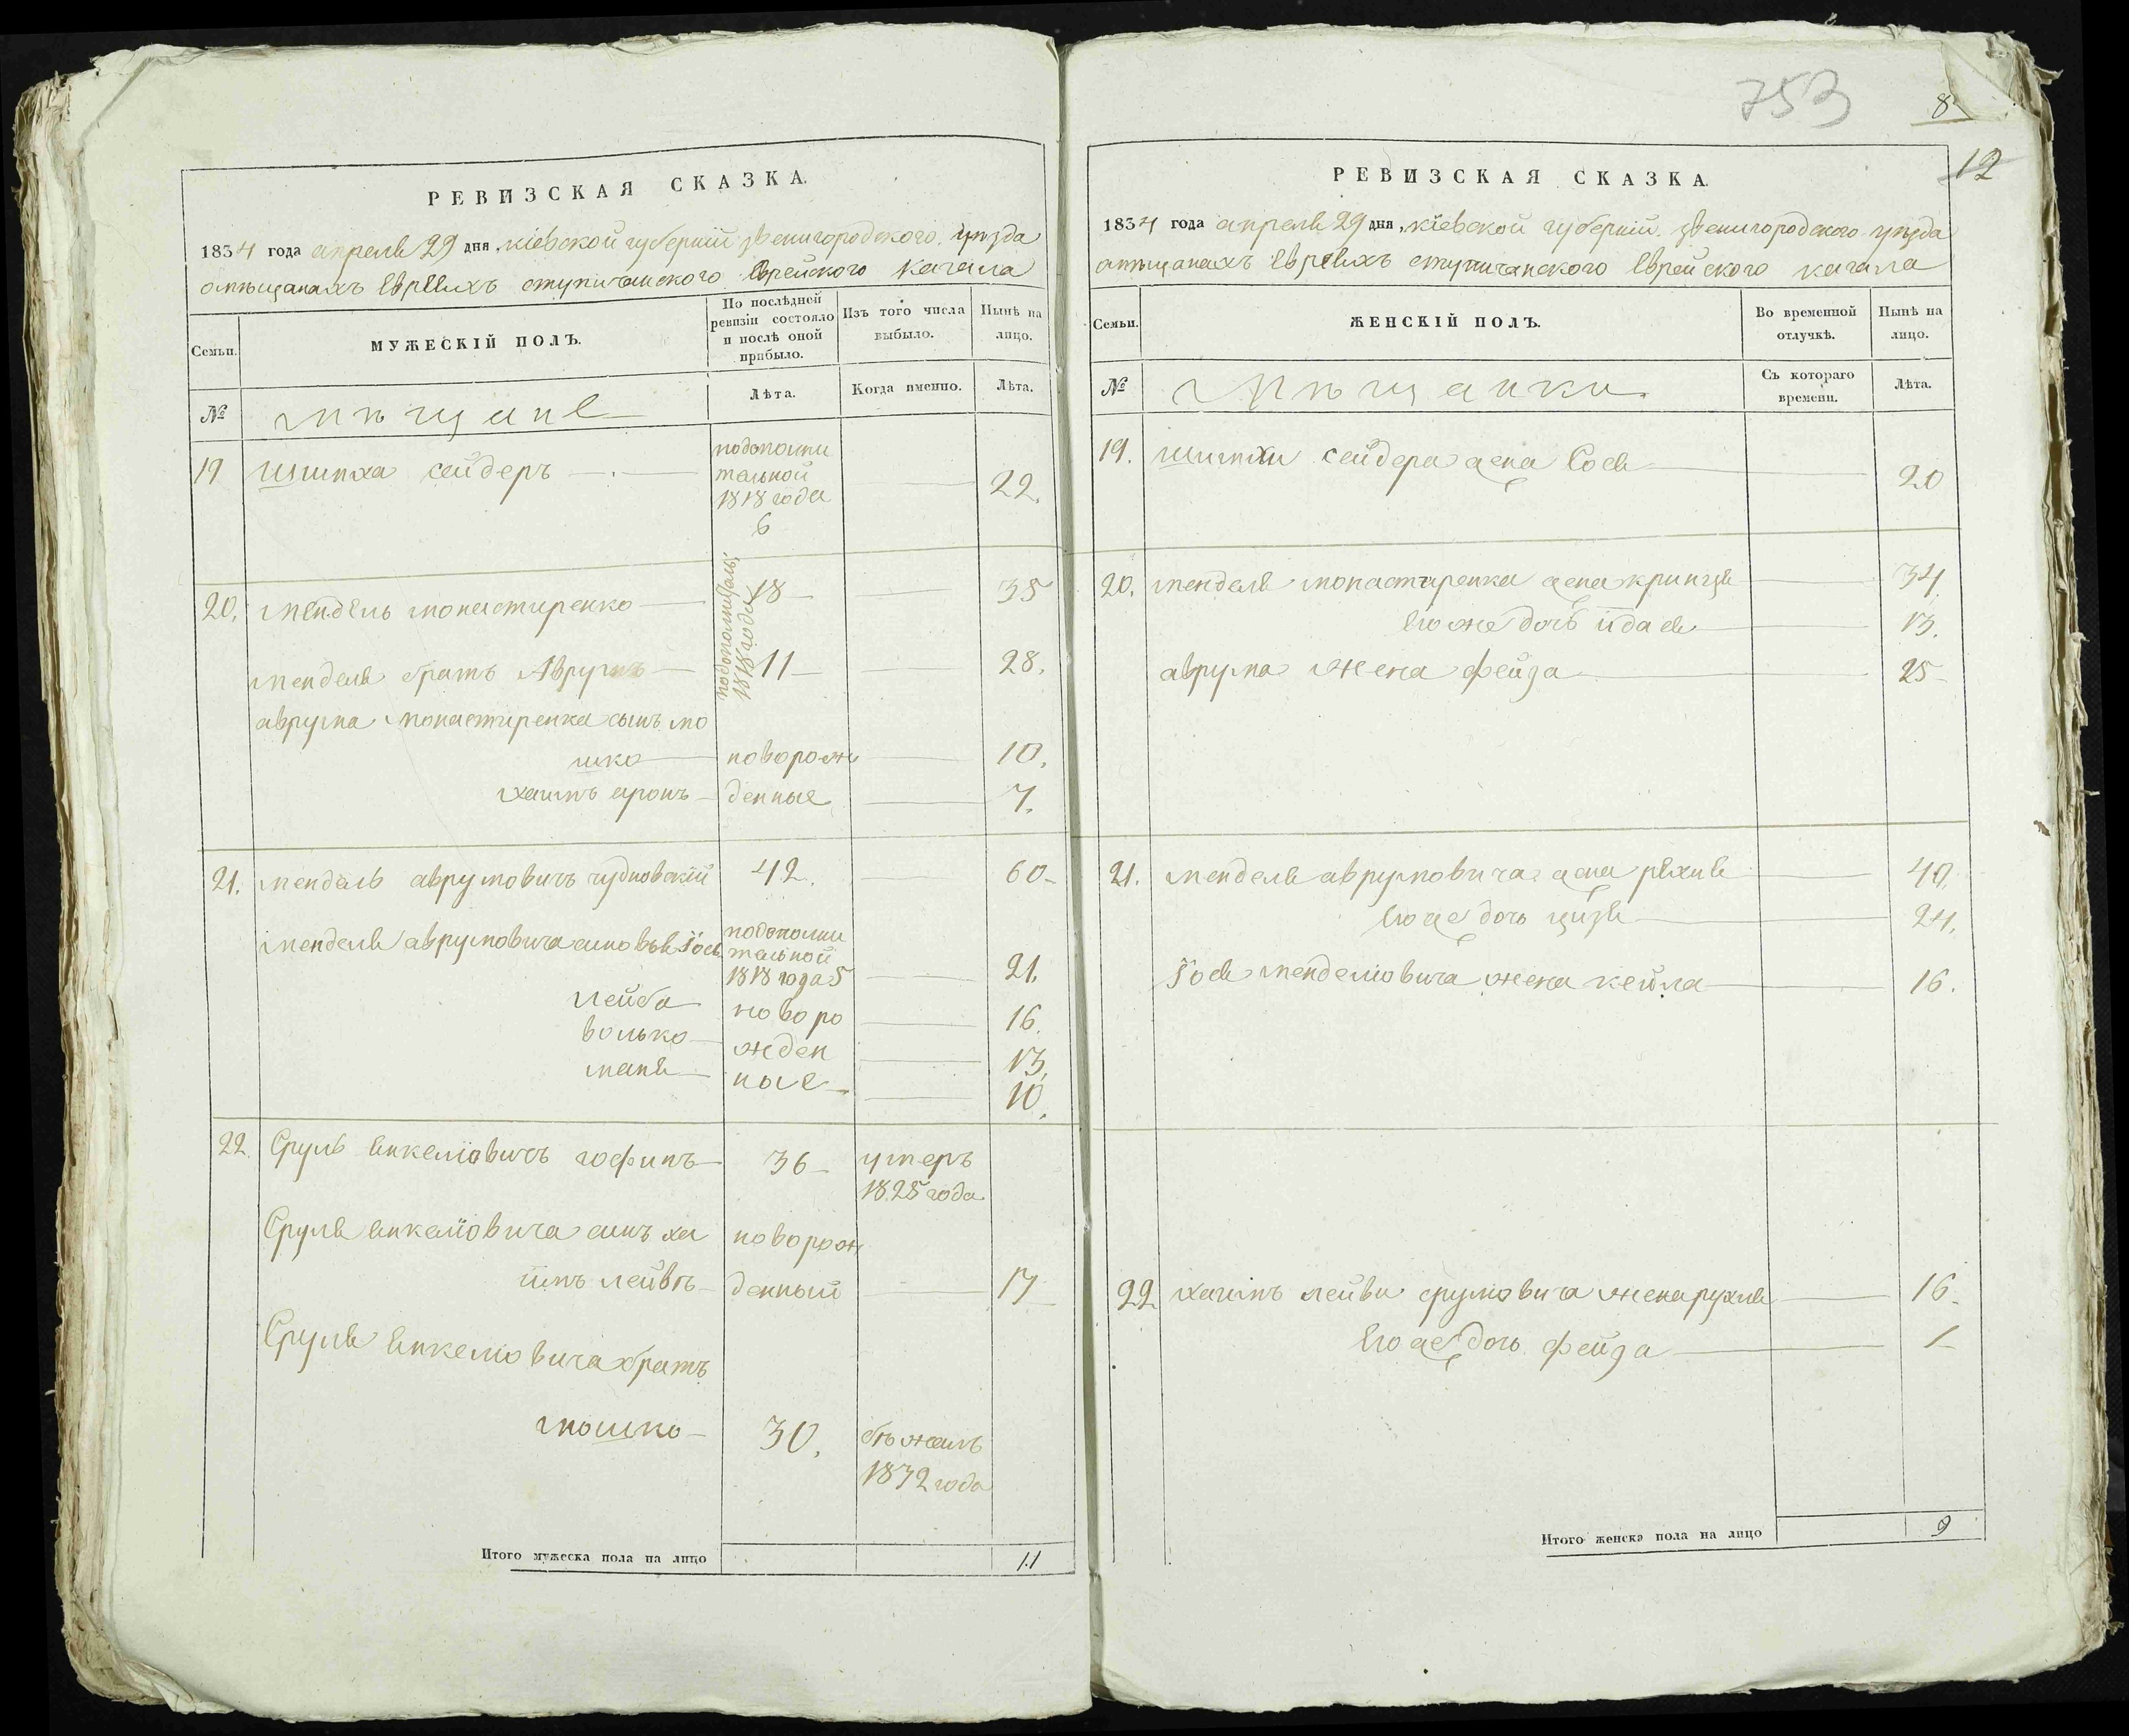 РЕВИЗСКАЯ СКАЗКА.
1834 года апреля 29 дня, Кіевской губерніи звенигородского уезда
о мѣщанахъ Евреяхъ ступичанского Еврейского кагала
Семьи.
МУЖЕСКІЙ ПОЛЪ.
По послѣдней ревизіи состояло и послѣ оной прибыло.
Изъ того числа выбыло.
Нынѣ на лицо.
№
мѣщане
Лѣта.
Когда именно.
Лѣта.
19 Шимха сейдеръ
подополни
тельной
1818 года
6
22.
20. мендель монастиренко 18 35
подополнитель:
1818 года
менделя братъ Аврумъ 11 28.
аврума монастиренка сынъ мо
шко новорожь 10.
хаимъ аронъ денные 7.
21. мендель аврумовичъ чудновскій 42. 60
менделя аврумовича сыновья Іось
подополни
тельной
1818 года 5 21.
лейба новоро 16.
волько жден 13,
маня ные 10.
22. Сруль янкеліовичъ гофинъ 36 умеръ
1825 года
Сруля янкеліовича синъ ха новорож
іимъ лейвъ денный 17
Сруля янкеліовича братъ
мошко 30. бѣжалъ
1832 года
Итого мужеска пола на лицо 11
753
8
12
РЕВИЗСКАЯ СКАЗКА.
1834 года апреля 29 дня, Кіевской губерніи звенигородского уезда
о мѣщанахъ Евреяхъ ступичанского Еврейского кагала
Семьи.
ЖЕНСКІЙ ПОЛЪ.
Во временной отлучкѣ.
Нынѣ на лицо.
№
Мѣщанки.
Съ котораго времени.
Лѣта.
19. Шимхи сейдера жена Сося 20
20. менделя монастиренка жена кринця 34
Его же дочь іидася 13.
аврума жена фейга 25
21. менделя аврумовича жена рѣхиля 40,
Его же дочь цизя 24,
Іося менделіовича жена кейла 16.
22 хаимъ лейви сруліовича жена рухля 16
Его же дочь фейга 1
Итого женска пола на лицо 9